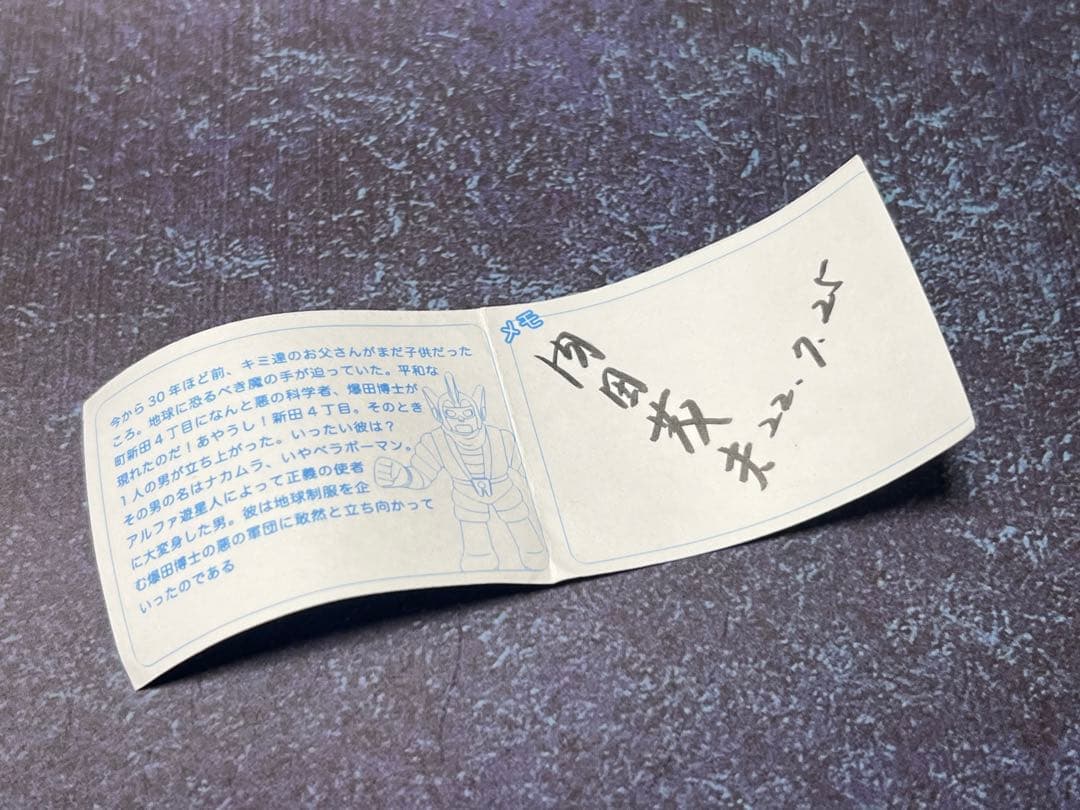 今から30年ほど前、キミ達のお父さんがまだ子供だった
ころ。地球に恐るべき魔の手が迫っていた。平和な
町新田4丁目になんと悪の科学者、爆田博士が
現れたのだ!あやうし!新田4丁目。そのとき
1人の男が立ち上がった。いったい彼は?
その男の名はナカムラ、いやベラボーマン。
アルファ遊星人によって正義の使者
に大変身した男。彼は地球制服を企
む爆田博士の悪の軍団に敢然と立ち向かって
いったのである
メモ
田
夫 22.7.25